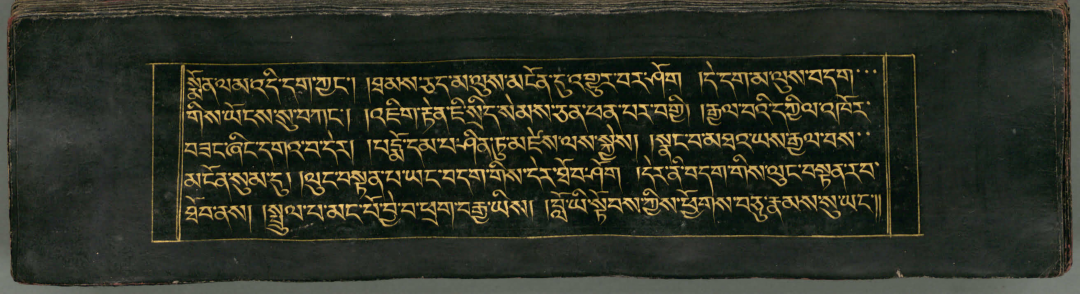 སྨོན་ལམ་འདི་དག་ཀྱང་། །ཐམས་ཅད་མ་ལུས་མངོན་དུ་འགྱུར་བར་ཤོག །དེ་དག་མ་ལུས་བདག་
གིས་ཡོངས་སུ་བཀང་། །འཇིག་རྟེན་ཇི་སྲིད་སེམས་ཅན་ཕན་པར་བགྱི། །རྒྱལ་བའི་དཀྱིལ་འཁོར་
བཟང་ཞིང་དགའ་བ་དེར། །པདྨོ་དམ་པ་ཤིན་ཏུ་མཛེས་ལས་སྐྱེས། །སྣང་བ་མཐའ་ཡས་རྒྱལ་བས་
མངོན་སུམ་དུ། །ལུང་བསྟན་པ་ཡང་བདག་གིས་དེར་ཐོབ་ཤོག །དེར་ནི་བདག་གིས་ལུང་བསྟན་རབ་
ཐོབ་ནས། །སྤྲུལ་པ་མང་པོ་བྱེ་བ་ཕྲག་བརྒྱ་ཡིས། །བློ་ཡི་སྟོབས་ཀྱིས་ཕྱོགས་བཅུ་རྣམས་སུ་ཡང་༎